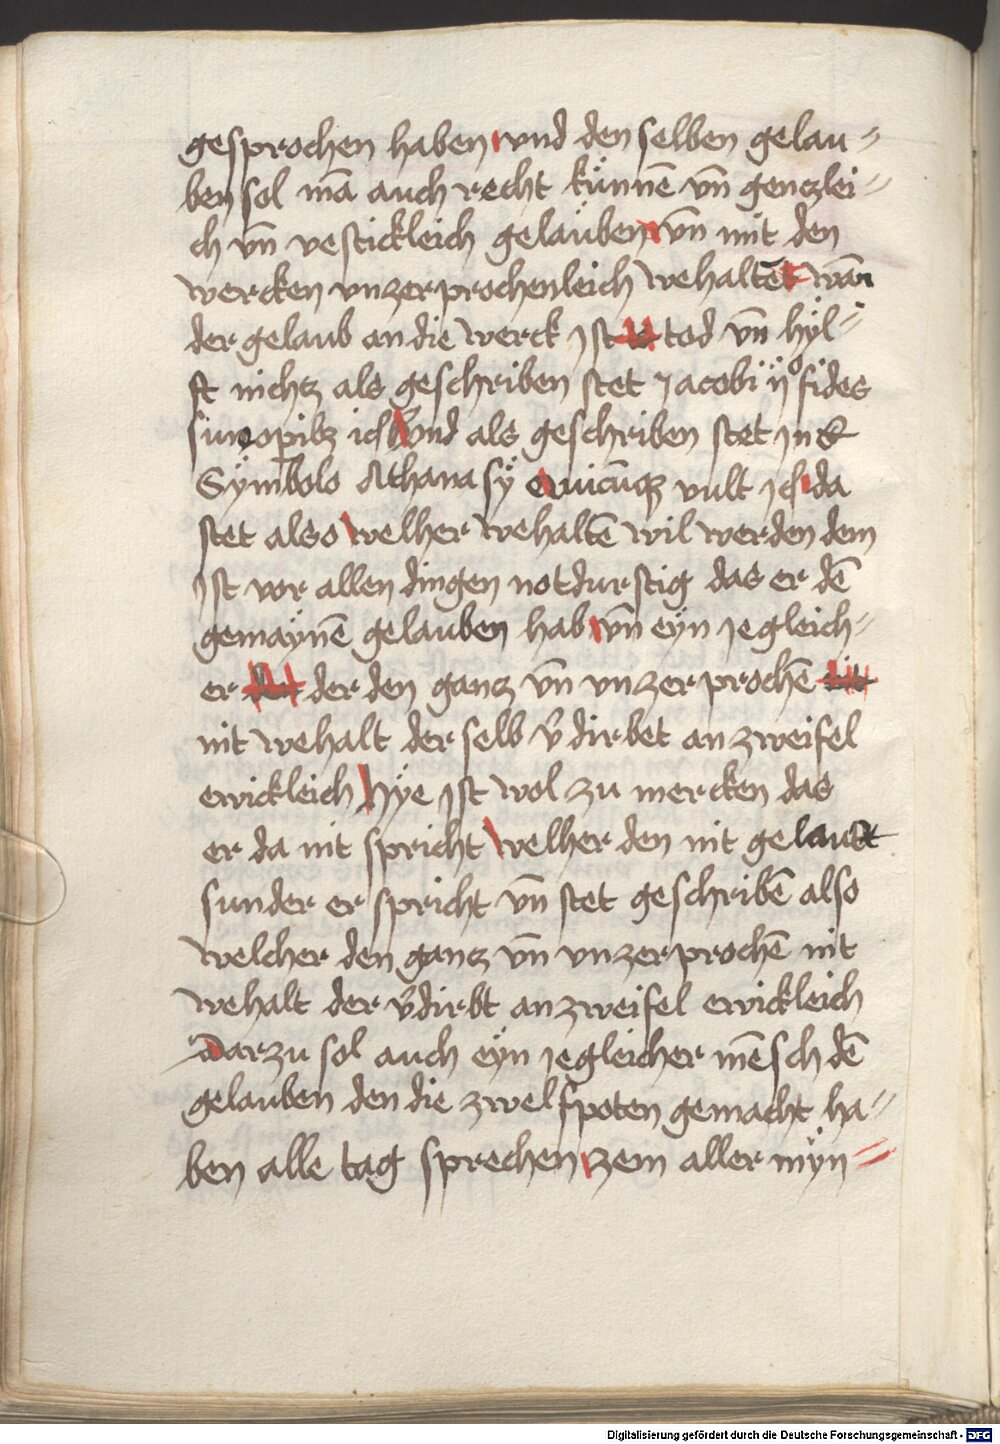 gesprochen haben und den selben gelau⸗
ben sol mā auch recht künnē vn̄ genczlei⸗
ch vn̄ vestickleich gelauben vn̄ mit den
wercken vnzerprochenleich wehaltē wān
der gelaub an die werck jst tod vn̄ hÿl⸗
ft nichtz als geschriben stet jacobi ijº fides
sū opibꝫ und als geschriben stet jn
Sÿmbolo Athanasÿ Quicūqꝫ vult da
stet also welher wehaltē wil werden dem
jst vor allen dingen notdurftig das er dē
gemaÿnē gelauben hab vn̄ eÿn jegleich⸗
er der den gancz vn̄ vnzerprochē
nit wehalt der selb v̄dirbet an zweifel
ewickleich Hÿe jst wol zu mercken das
er da nit spricht welher den nit gelaubt
sunder er spricht vn̄ stet geschribē also
welcher den gancz vn̄ vnzerprochē nit
wehalt der v̄dirbt an zweifel ewickleich
Darzu sol auch eÿn jegleicher mēsch dē
gelauben den die zwelfpoten gemacht ha⸗
ben alle tag sprechen zem aller mÿn⸗
Digitalisierung gefördert durch die Deutsche Forschungsgemeinschaft - DFG